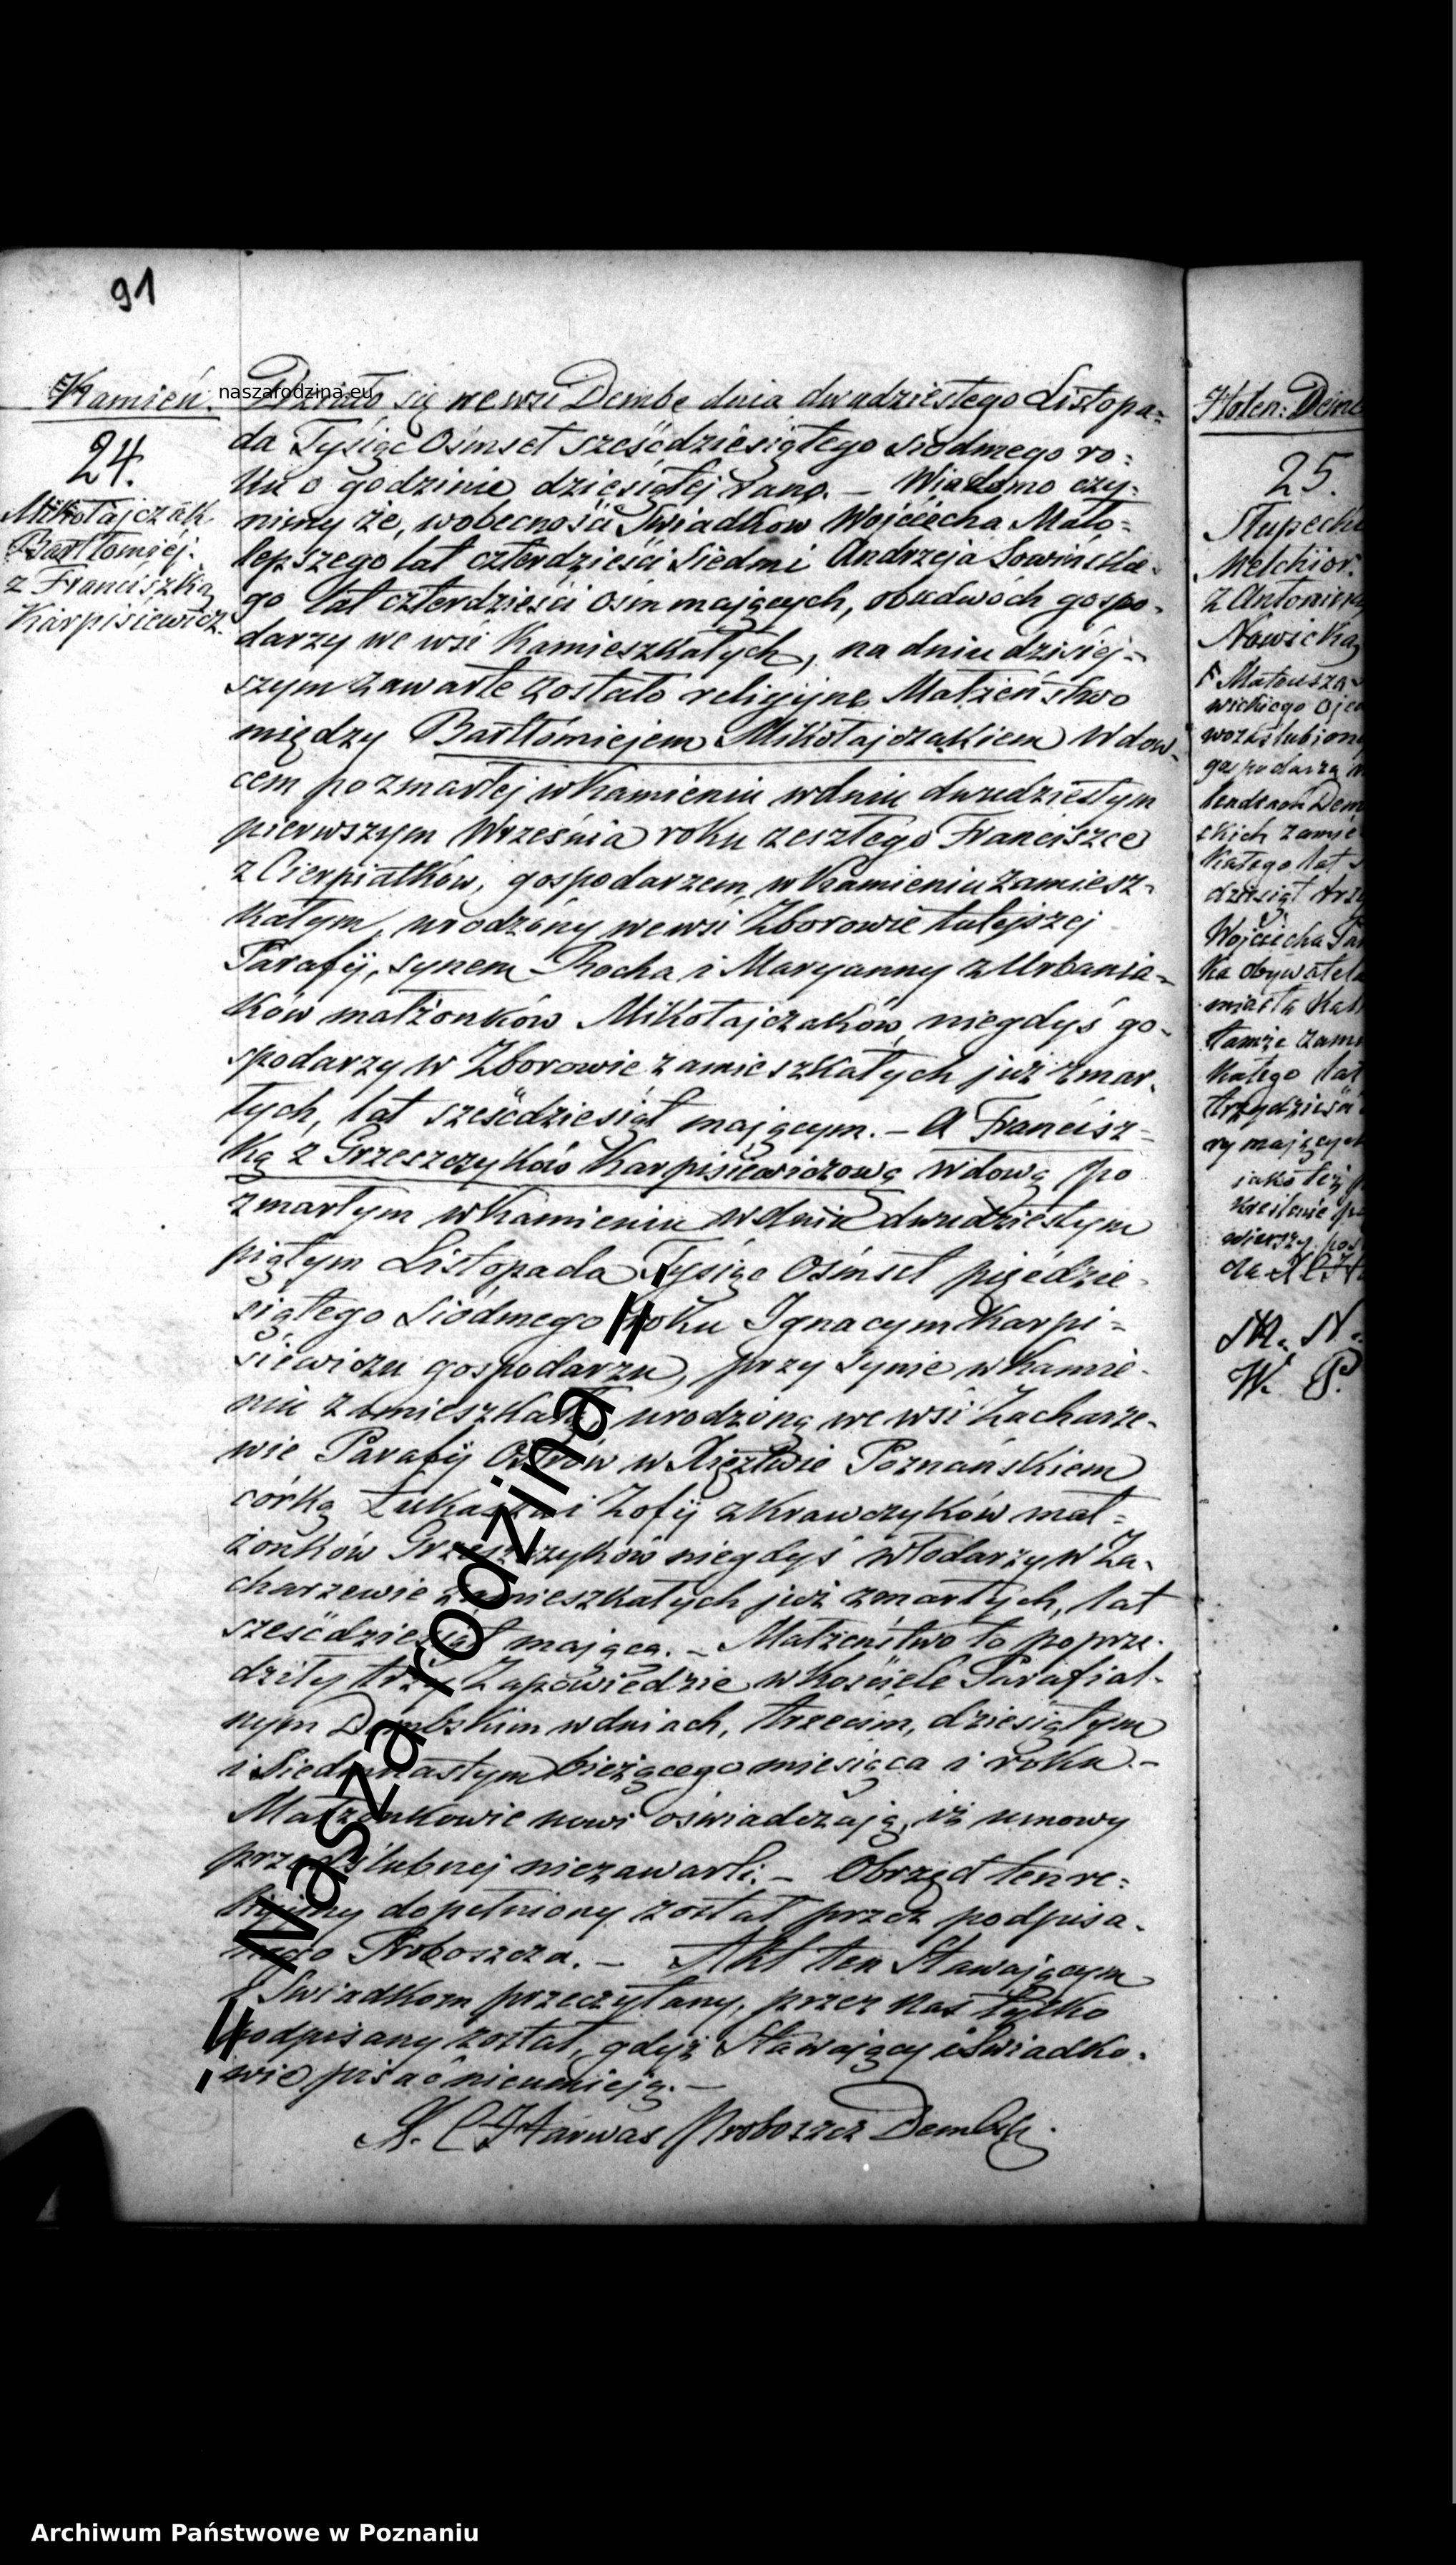 91
Kamień.
24.
Mikołajczak
Bartłomiej
z Franciszką
Karpisiewicz.
naszarodzina.eu
Działo się we wsi Dembe dnia dwudziestego Listopa=
da Tysiąc Ośmset sześćdziesiątego siódmego ro=
ku o godzinie dziesiątej rano. — Wiadomo czy=
nimy że, w obecności Świadków Wojciecha Mało=
lepszego lat czterdzieści Siedm i Andrzeja Sowińskie=
go lat czterdzieści ośm mających, obudwóch gospo=
darzy we wsi Kamieszkałych, na dniu dzisiej=
szym zawarte zostało religijne Małżeństwo
między Bartłomiejem Mikołajczakiem Wdow=
cem po zmarłej w Kamieniu w dniu dwudziestym
pierwszym Września roku zeszłego Franciszce
z Cierpiatków, gospodarzem, w Kamieniu zamiesz=
kałym, urodzony we wsi Zborowie tutejszej
Parafij, synem Rocha i Maryanny z Urbania=
ków małżonków Mikołajczaków, niegdyś go=
spodarzy w Zborowie zamieszkałych już zmar=
łych, lat sześćdziesiąt mającym. — A Francisz=
ką z Grzeszczyków Karpisiewiczową wdową po
zmarłym w Kamieniu w dniu dwudziestym
piątym Listopada Tysiąc Ośmset pięćdzie=
siątego Siódmego roku Ignacym Karpi=
siewiczu gospodarzu, przy Synie w Kamie=
niu zamieszkałą, urodzoną we wsi Zacharze=
wie Parafij Ostrów w Xięztwie Poznańskiem
córką Łukasza i Zofij z Krawczyków mał=
żonków Grzeszczyków niegdyś włodarzy w Za=
charzewie zamieszkałych już zmarłych, lat
sześćdziesiąt mającą. — Małżeństwo to poprze=
dziły trzy Zapowiedzie w Kościele Parafial=
nym Dembskim w dniach, trzecim, dziesiątym
i Siedmnastym bieżącego miesiąca i roku. —
Małżonkowie nowi oświadczają, iż umowy
przedślubnej niezawarli. — Obrzęd ten re=
ligijny dopełniony został przez podpisa=
nego Proboszcza. — Akt ten Stawającym
i Świadkom przeczytany, przez Nas tylko
podpisany został, gdyż Stawający i Świadko=
wie pisać nieumieją. —
X. C Harwas Proboszcz Dembski.
-= Nasza rodzina =-
Holen: Demb
25.
Słupecki
Melchior.
z Antoniną
Nowicką
Mateusza
wickiego Ojca
wozaślubion
gospodarza
lendrach Dem
skich zamie
kałego lat
dziesiąt trzy
Wojciecha
ka obywatela
miasta Kal
tamże zami
kałego lat
trzydzieści
ry mających
jako też
kreślenie
wierszy pos
da X C H
M. N.
W. P.
Archiwum Państwowe w Poznaniu